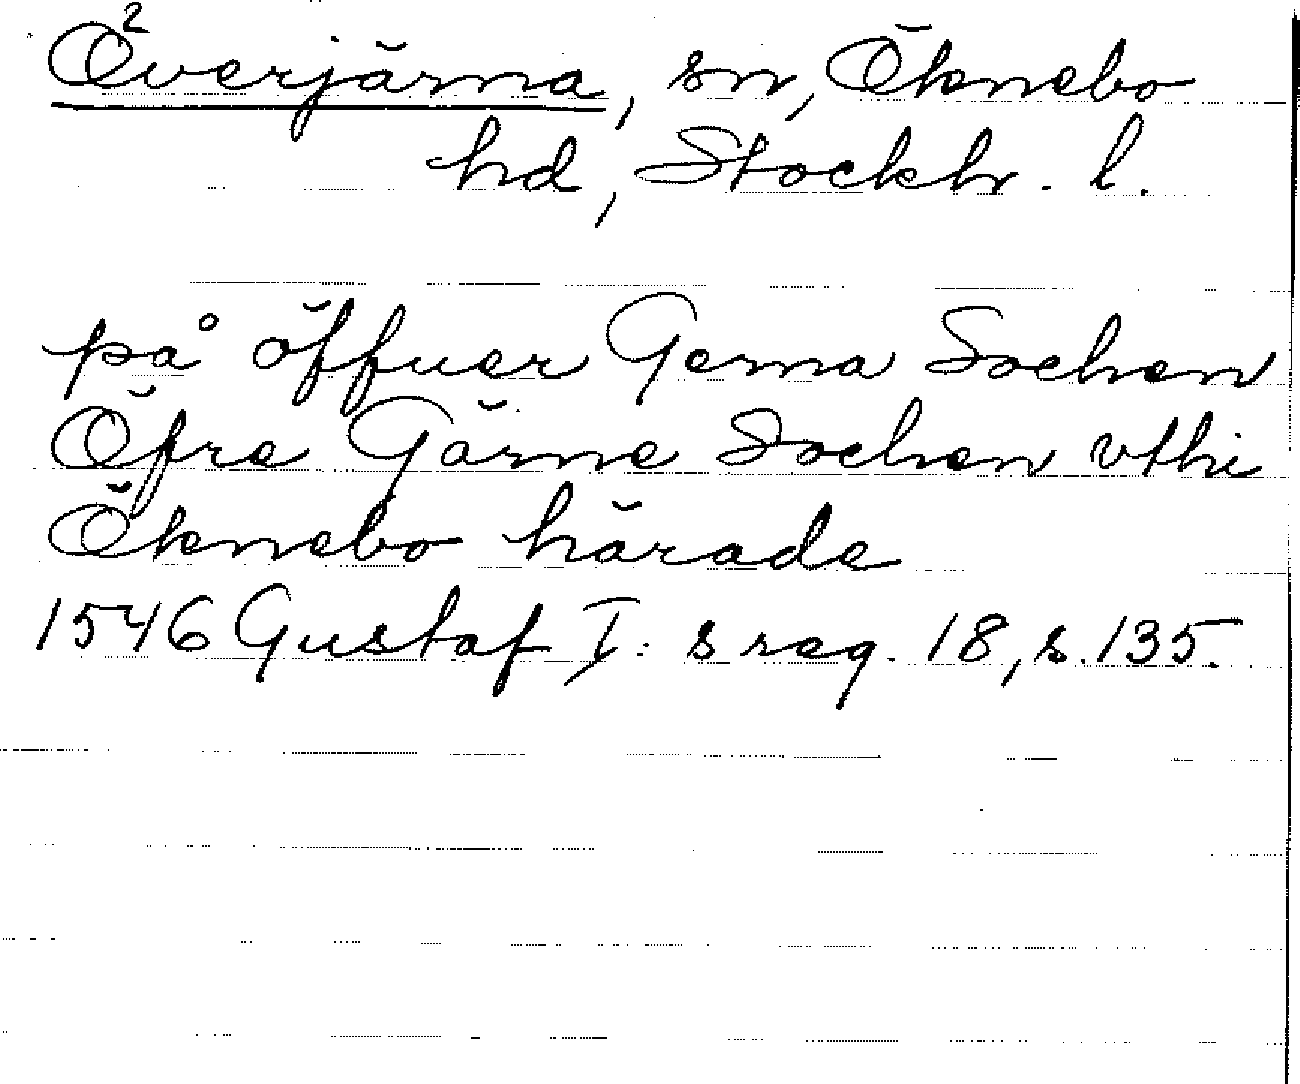 Överjärna, sn, Öknebo
hd, Stockh. l.
på öffuer Gerna Sochen
Öfre Gärne Sochen vthi
Öknebo härade
1546 Gustaf I: s reg. 18, s. 135.